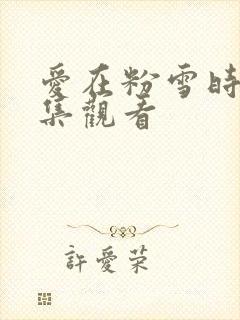 愛在粉雪時
集觀看
許愛榮